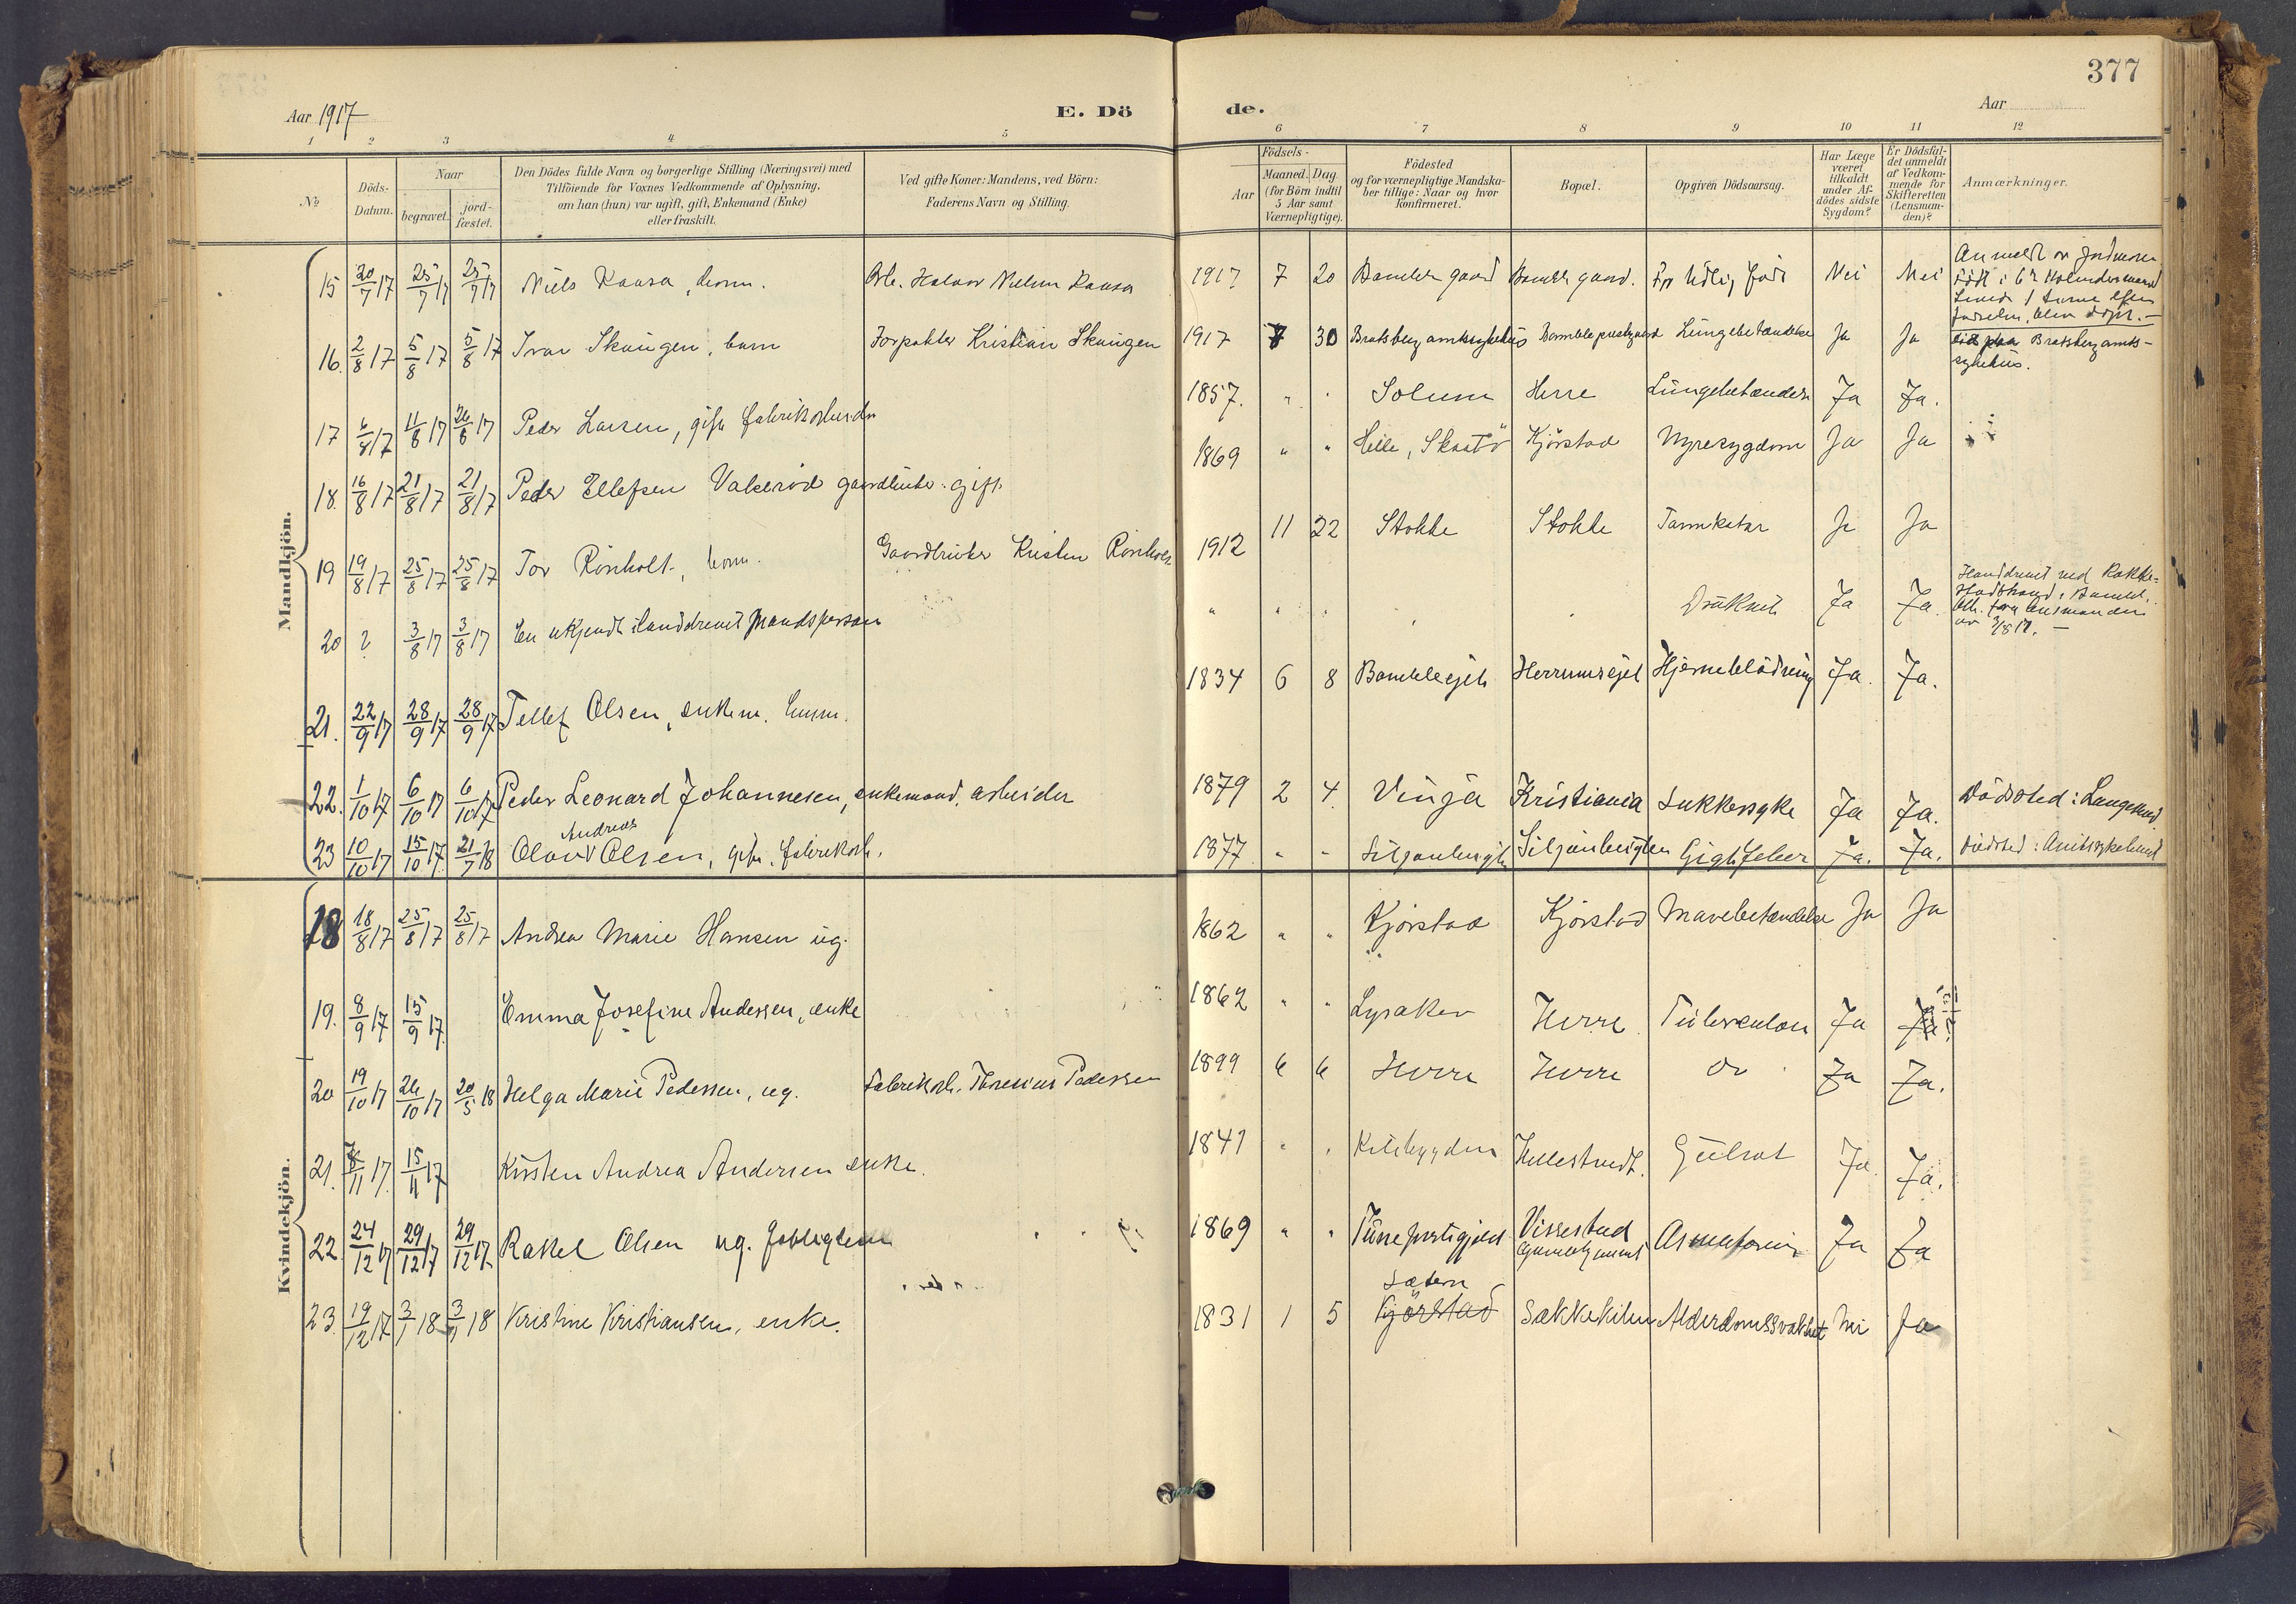 377
Aar 1917
E. Dö
de.
Aar
1 2 3 4 5 6 7 8 9 10 11 12
No
Döds-Datum.
Naar
begravet.
jord-fæstet.
Den Dödes fulde Navn og borgerlige Stilling (Næringsvei) med
Tilföiende for Voxnes Vedkommende af Oplysning,
om han (hun) var ugift, gift, Enkemand (Enke)
eller fraskilt.
Ved gifte Koner: Mandens, ved Börn:
Faderens Navn og Stilling.
Födsels-
Aar
Maaned. Dag
(for Börn indtil
5 Aar samt
Værnepligtige).
Födested
og for værnepligtige Mandska-
ber tillige: Naar og hvor
Konfirmeret.
Bopæl.
Opgiven Dödsaarsag.
Har Læge
været
tilkaldt
under Af-
dödes sidste
Sygdom?
Er Dödsfal-
det anmeldt
af Vedkom-
mende for
Skifteretten
(Lensman-
den)?
Anmærkninger.
Mandkjön.
15 20/7 17 25/7 17 25/7 17 Niels Raasa, barn. Halvor Nielsen Raasa 1917 7 20 Bamble gaard Bamble gaard. For tidlig født Nei Nei Anmeldt av jordmoren
16. 2/8 17 5/8 17 5/8 17 Ivar Skaugen, barn Forpakter Kristian Skaugen 1917 7 30 Bratsberg amtssykehus Bamble prestegaard Lungebetændelse Ja Ja Bratsberg amts-
sykehus.
17 6/8 17 11/8 17 26/8 17 Peder Larsen, gift fabrikarbeider 1857. " " Solum Herre Lungebetændelse Ja Ja.
18. 16/8 17 21/8 17 21/8 17 Peder Ellefsen Valeröd gaardbruker gift. 1869 " " Helle, Skaatö Kjörstad Nyresygdom Ja Ja
19 19/8 17 25/8 17 25/8 17 Tor Rönholt, barn. Gaardbruker Kristen Rönholt 1912 11 22 Stokke Stokke Tarmkatar Ja Ja
20 ? 3/8 17 3/8 17 En ukjendt ilanddrevet Mandsperson " " " Druknet Ja Ja. Ilanddrevet ved Rakke-
stadstrand i Bamble.
Att. fra lensmanden
av 3/8 17. —
21. 22/9 17 28/9 17 28/9 17 Tellef Olsen, enkem. 1834 6 8 Bamble Herrumsejet Hjerneblödning Ja. Ja.
22. 1/10 17 6/10 17 6/10 17 Peder Leonard Johannesen, enkemand, arbeider 1879 2 4. Vinja Kristiania Sukkersyke Ja Ja. Dödssted: Langesund
23 10/10 17 15/10 17 21/7 18 Olav Andreas Olsen, gift. fabrikarb. 1877 " " Siljanbergbu Siljanbergbu Gigtfeber Ja. Ja. Dödssted: Amtssykehuset
Kvindekjön.
18 18/8 17 25/8 17 25/8 17 Andrea Marie Hansen ug. 1862 " " Kjörstad Kjörstad Mavebetændelse Ja Ja
19. 8/9 17 15/9 17. Emma Josefine Andersen, enke 1862 " " Lysaker Herre Tuberculose Ja Ja
20 19/10 17 26/10 17 20/5 18 Helga Marie Pedersen, ug. Fabrikarb. Thorsius Pedersen 1899 6 6 Herre Herre Do Ja Ja.
21. 7/11 17. 15/11 17 Kirsten Andrea Andersen enke. 1841 " " Kilebygden Hellestvedt. Gulsot Ja. Ja.
22 24/12 17 29/12 17 29/12 17. Rakel Olsen ug. 1869 " " Tune prestegjeld Vissestad Ja Ja
23. 19/12 17 3/1 18 3/1 18 Kristine Kristiansen, enke. 1831 1 5 Kjörstad Sætern Sakkekilen Alderdomssvakhet Nei Ja